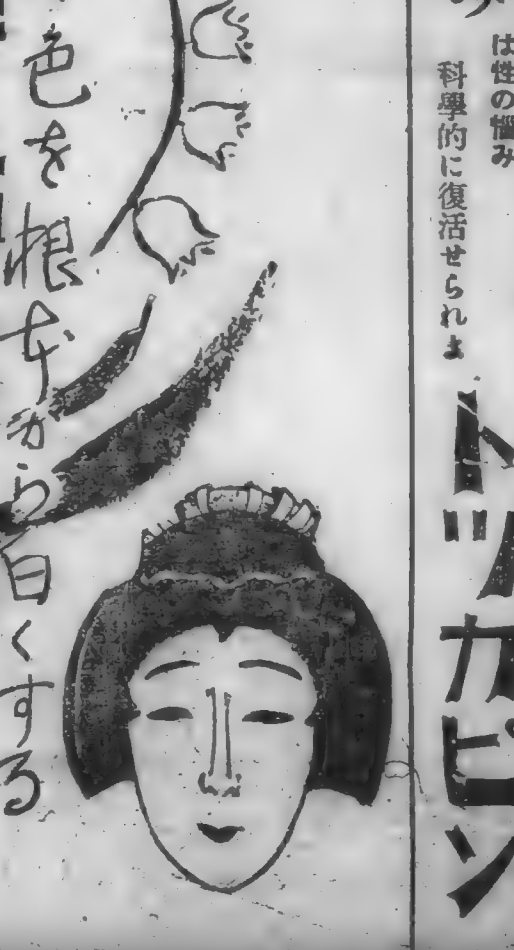 は性の悩み
科學的に復活せられま
トツカピン
色を根本から白くする